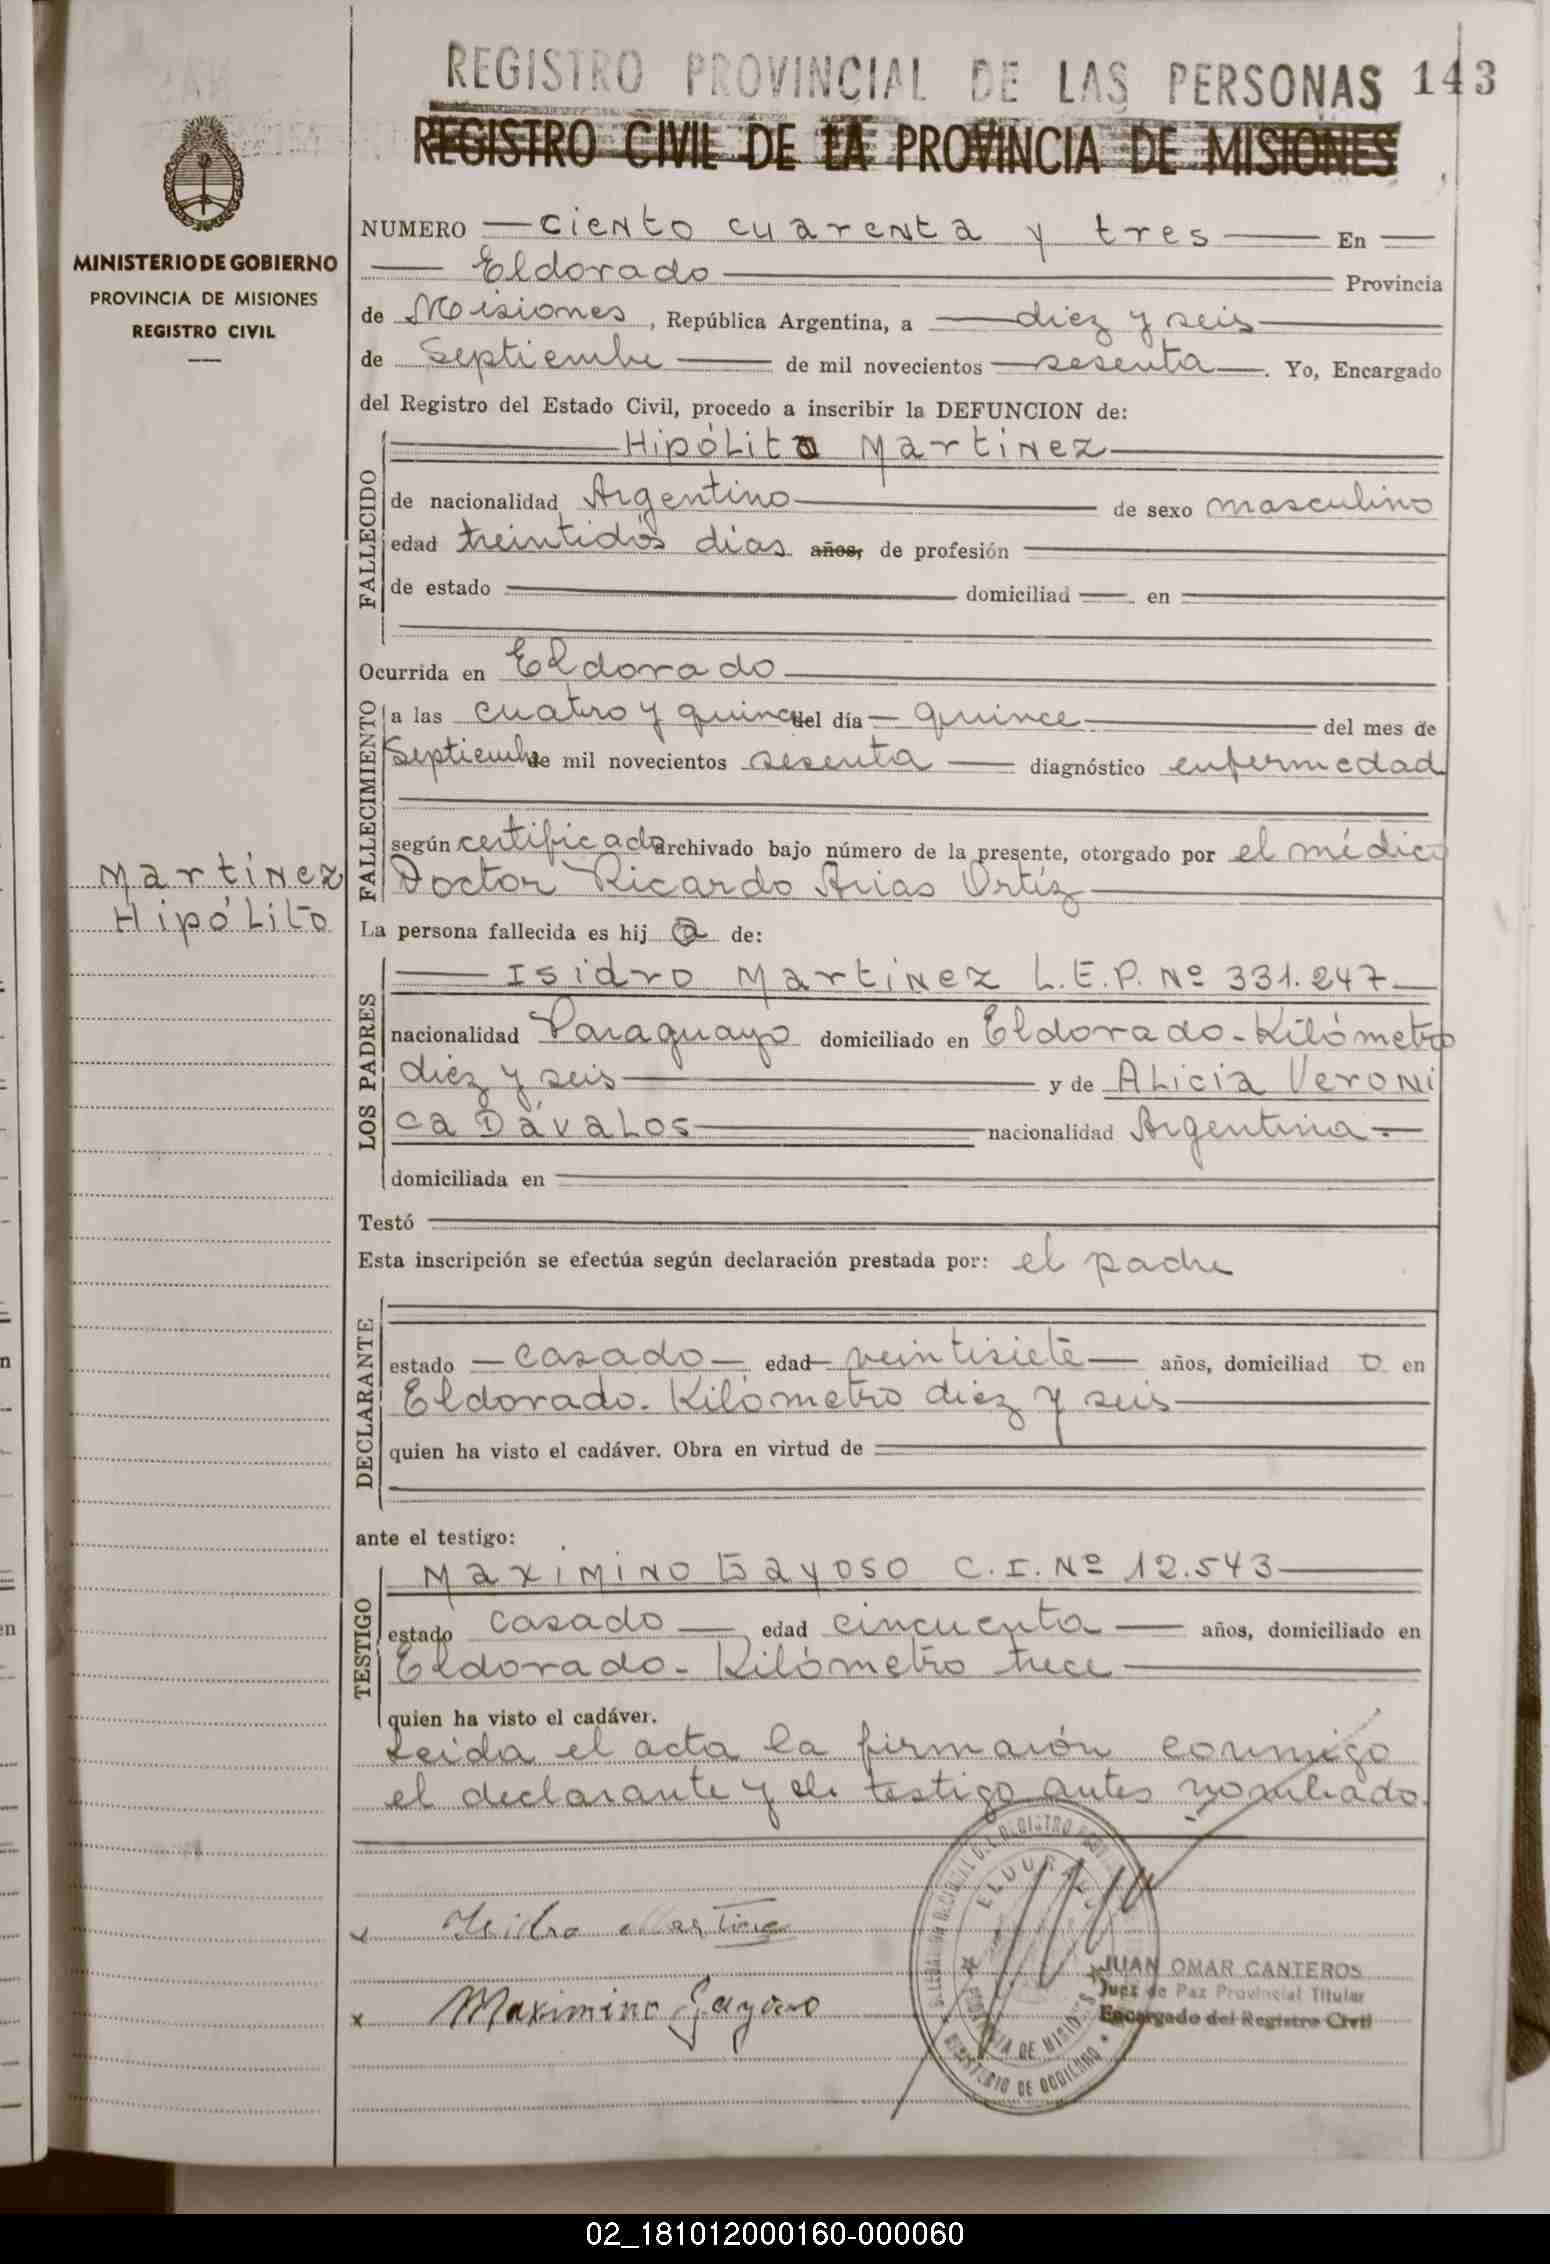 REGISTRO PROVINCIAL DE LAS PERSONAS 143
REGISTRO CIVIL DE LA PROVINCIA DE MISIONES
MINISTERIO DE GOBIERNO
PROVINCIA DE MISIONES
REGISTRO CIVIL
NUMERO ciento cuarenta y tres En
Eldorado Provincia
de Misiones, República Argentina, a diez y seis
de Septiembre de mil novecientos sesenta. Yo, Encargado
del Registro del Estado Civil, procedo a inscribir la DEFUNCION de:
FALLECIDO
Hipólito Martinez
de nacionalidad Argentino de sexo masculino
edad treintidós dias años, de profesión
de estado domiciliad en
Ocurrida en Eldorado
FALLECIMIENTO
a las cuatro y quince del día quince del mes de
Septiembre de mil novecientos sesenta diagnóstico enfermedad
según certificado archivado bajo número de la presente, otorgado por el médico
Doctor Ricardo Arias Ortíz
Martinez
Hipólito
La persona fallecida es hij o de:
LOS PADRES
Isidro Martinez L.E.P. Nº 331.247
nacionalidad Paraguayo domiciliado en Eldorado-Kilómetro
diez y seis y de Alicia Veroni
ca Dávalos nacionalidad Argentina.-
domiciliada en
Testó
Esta inscripción se efectúa según declaración prestada por: el padre
DECLARANTE
estado casado edad veintisiete años, domiciliad o en
Eldorado. Kilómetro diez y seis
quien ha visto el cadáver. Obra en virtud de
ante el testigo:
TESTIGO
Maximino Gayoso C.I. Nº 12.543
estado casado edad cincuenta años, domiciliado en
Eldorado- Kilómetro trece
quien ha visto el cadáver.
Leida el acta la firmarón conmigo
el declarante y el testigo antes nombrado.
x Isidro Martinez
x Maximino Gayoso
ELDORADO
PROVINCIA DE MISIONES
MINISTERIO DE GOBIERNO
JUAN OMAR CANTEROS
Juez de Paz Provincial Titular
Encargado del Registro Civil
02_181012000160-000060